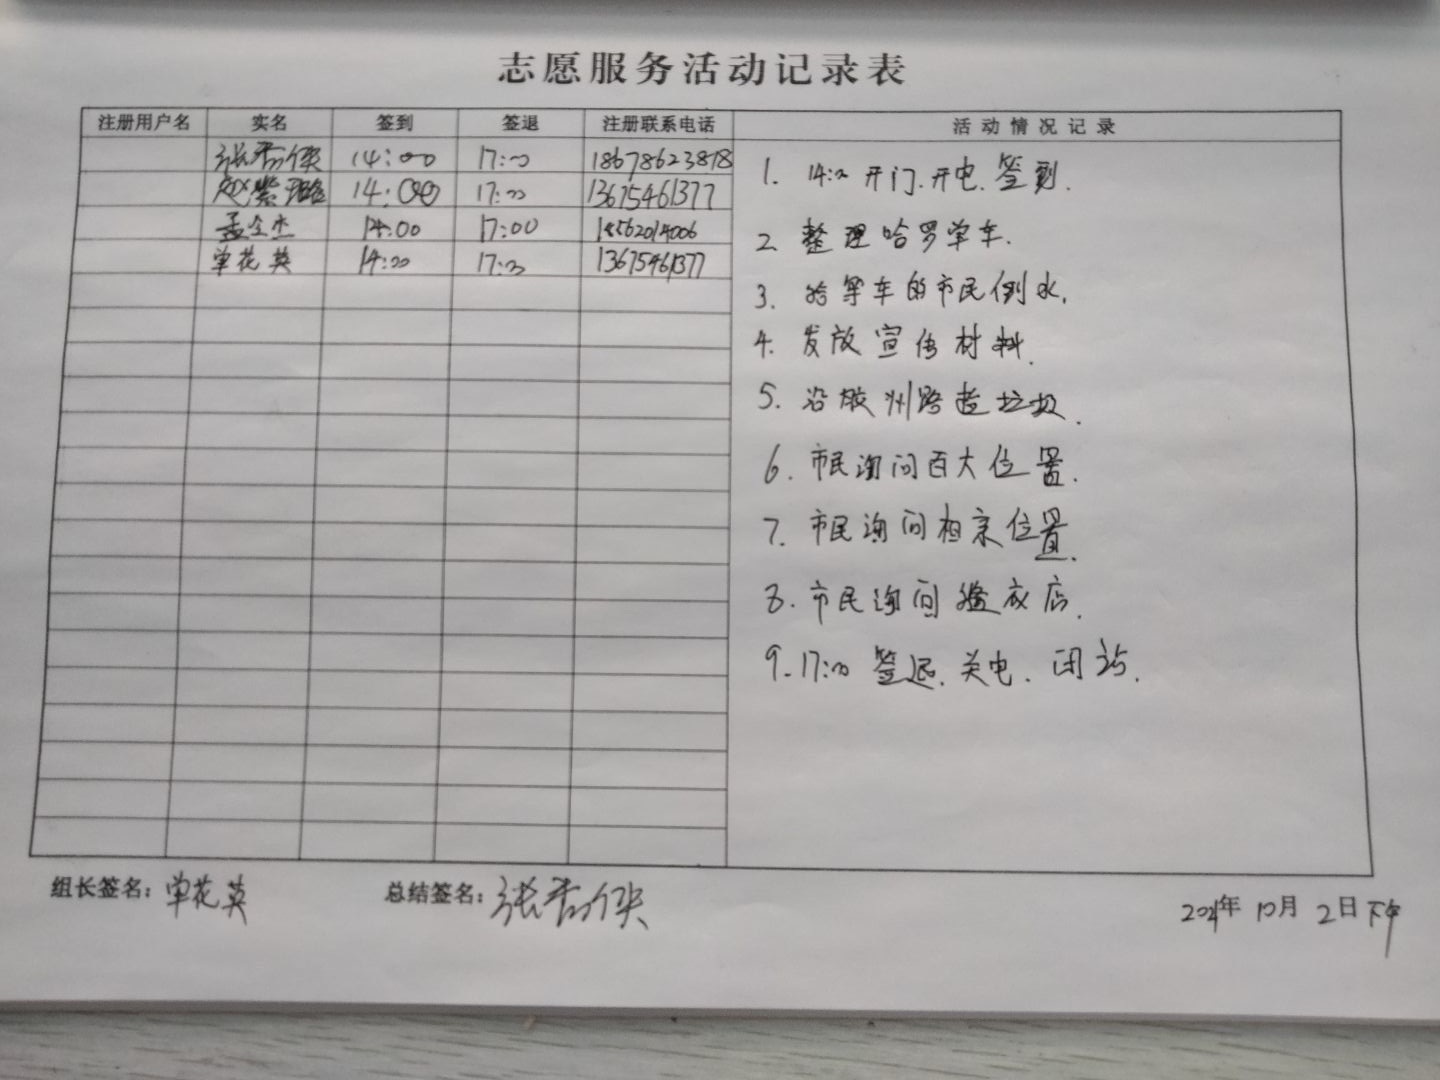 志愿服务活动记录表
注册用户名 实名 签到 签退 注册联系电话 活动情况记录
张秀侠 14:00 17:00 18678623878
赵紫璐 14:00 17:00 13675461377
孟全杰 14:00 17:00 18562014006
单花英 14:00 17:00 13675461377
1. 14:00 开门.开电.签到.
2 整理哈罗单车.
3. 给等车的市民倒水.
4. 发放宣传材料.
5. 沿胶州路捡垃圾.
6. 市民询问百大位置.
7. 市民询问相亲位置.
8. 市民询问 衣店.
9. 17:00 签退.关电.闭站.
组长签名：单花英 总结签名：张秀侠 2021年 10月 2日下午